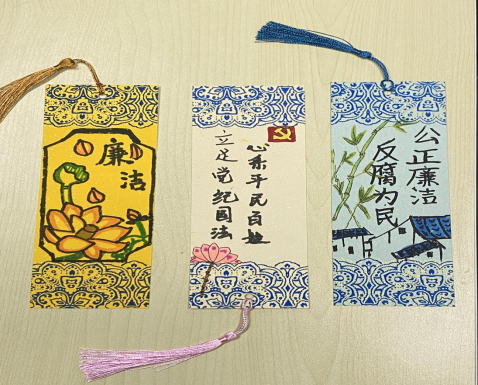 廉洁
立足党纪国法
心系平民百姓
公正廉洁
反腐为民